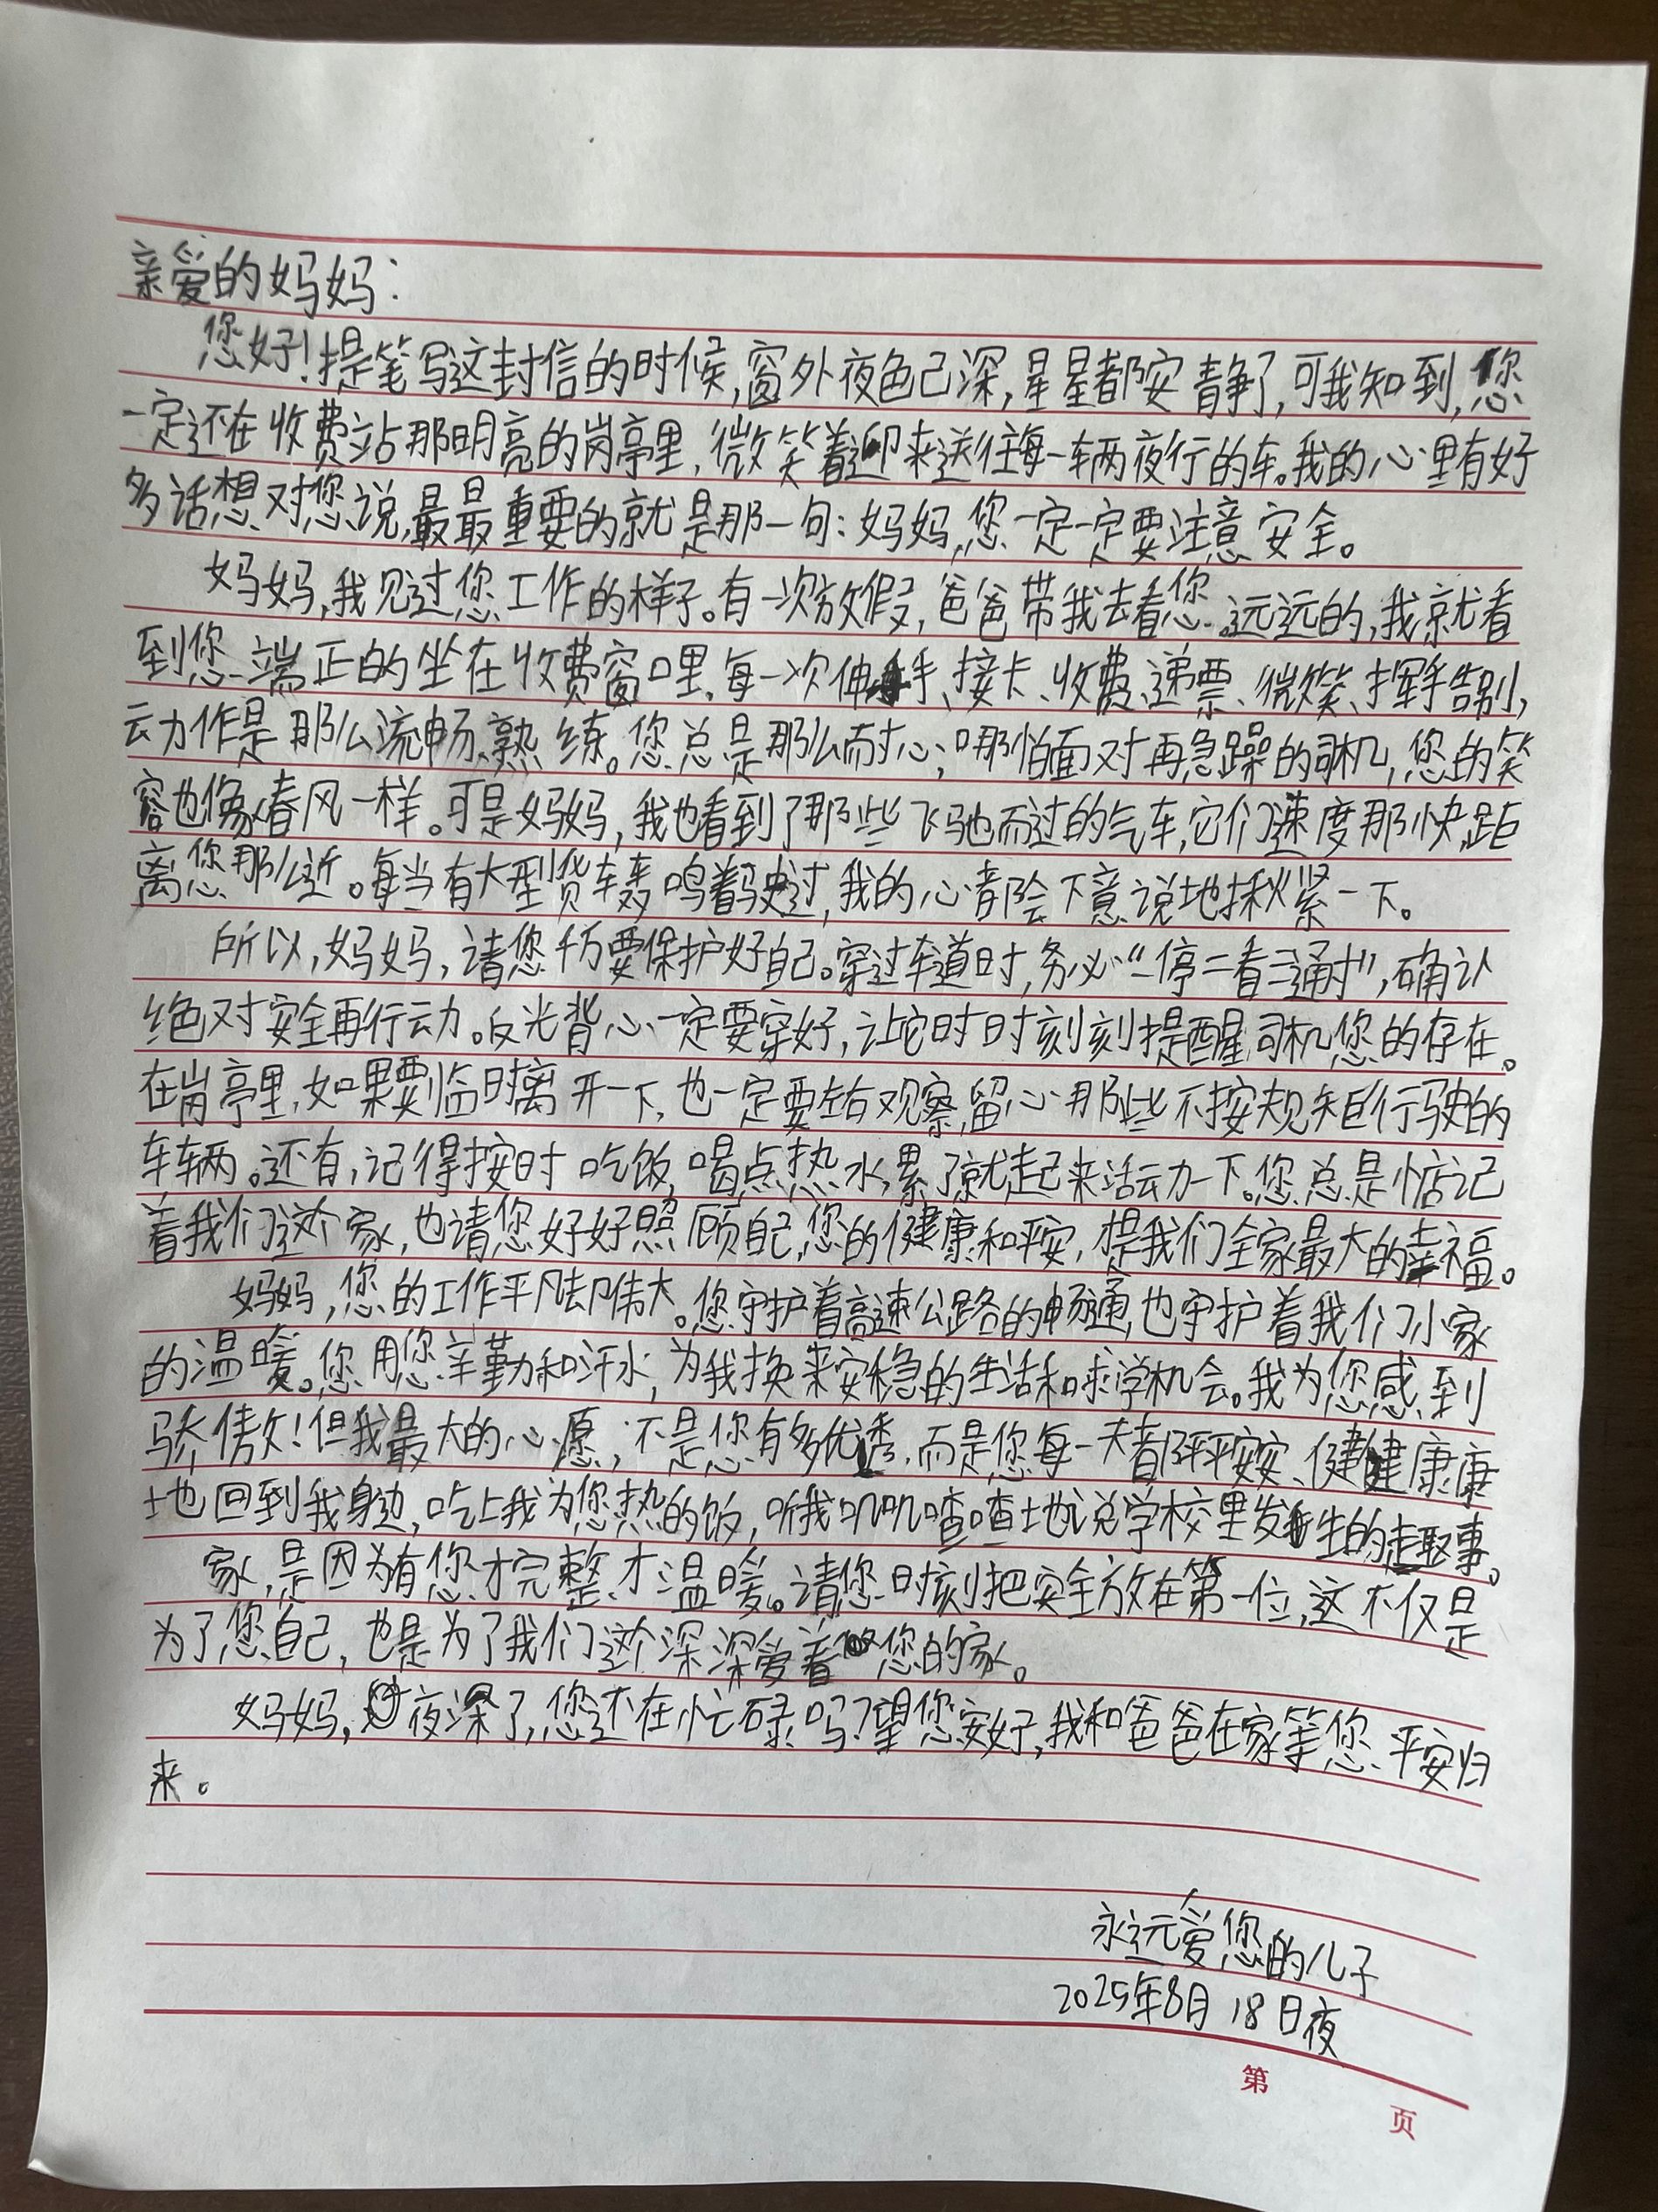 亲爱的妈妈：
您好！提笔写这封信的时候，窗外夜色己深，星星都安静了，可我知到，您
一定还在收费站那明亮的岗亭里，微笑着迎来送往每一辆夜行的车。我的心里有好
多话想对您说，最最重要的就是那一句：妈妈，您一定一定要注意安全。
妈妈，我见过您工作的样子。有一次放假，爸爸带我去看您。远远的，我就看
到您端正的坐在收费窗口里，每一次伸手、接卡、收费、递票、微笑、挥手告别，
动作是那么流畅、熟练。您总是那么耐心；哪怕面对再急躁的司机，您的笑
容也像春风一样。可是妈妈，我也看到了那些飞驰而过的气车，它们速度那快，距
离您那么近。每当有大型货车轰鸣着驶过，我的心都会下意说地揪紧一下。
所以，妈妈，请您千万要保护好自己。穿过车道时，务必“一停二看三通过”，确认
绝对安全再行动。反光背心一定要穿好，让它时时刻刻提醒司机您的存在。
在岗亭里，如果要临时离开一下，也一定要左右观察，留心那些不按规矩行驶的
车辆。还有，记得按时吃饭，喝点热水，累了就起来活动一下。您总是惦记
着我们这个家，也请您好好照顾自己，您的健康和平安，是我们全家最大的幸福。
妈妈，您的工作平凡却伟大。您守护着高速公路的畅通，也守护着我们小家
的温暖。您用您辛勤和汗水，为我换来安稳的生活和求学机会。我为您感到
骄傲！但我最大的心愿，不是您有多优秀，而是您每一天都平平安安、健健康康
地回到我身边，吃上我为您热的饭，听我叽叽喳喳地说学校里发生的趣事。
家，是因为有您才完整、才温暖。请您时刻把安全放在第一位，这不仅是
为了您自己，也是为了我们这个深深爱着您的家。
妈妈，夜深了，您还在忙碌吗？望您安好，我和爸爸在家等您、平安归
来。
永远爱您的儿子
2025年8月18日夜
第
页